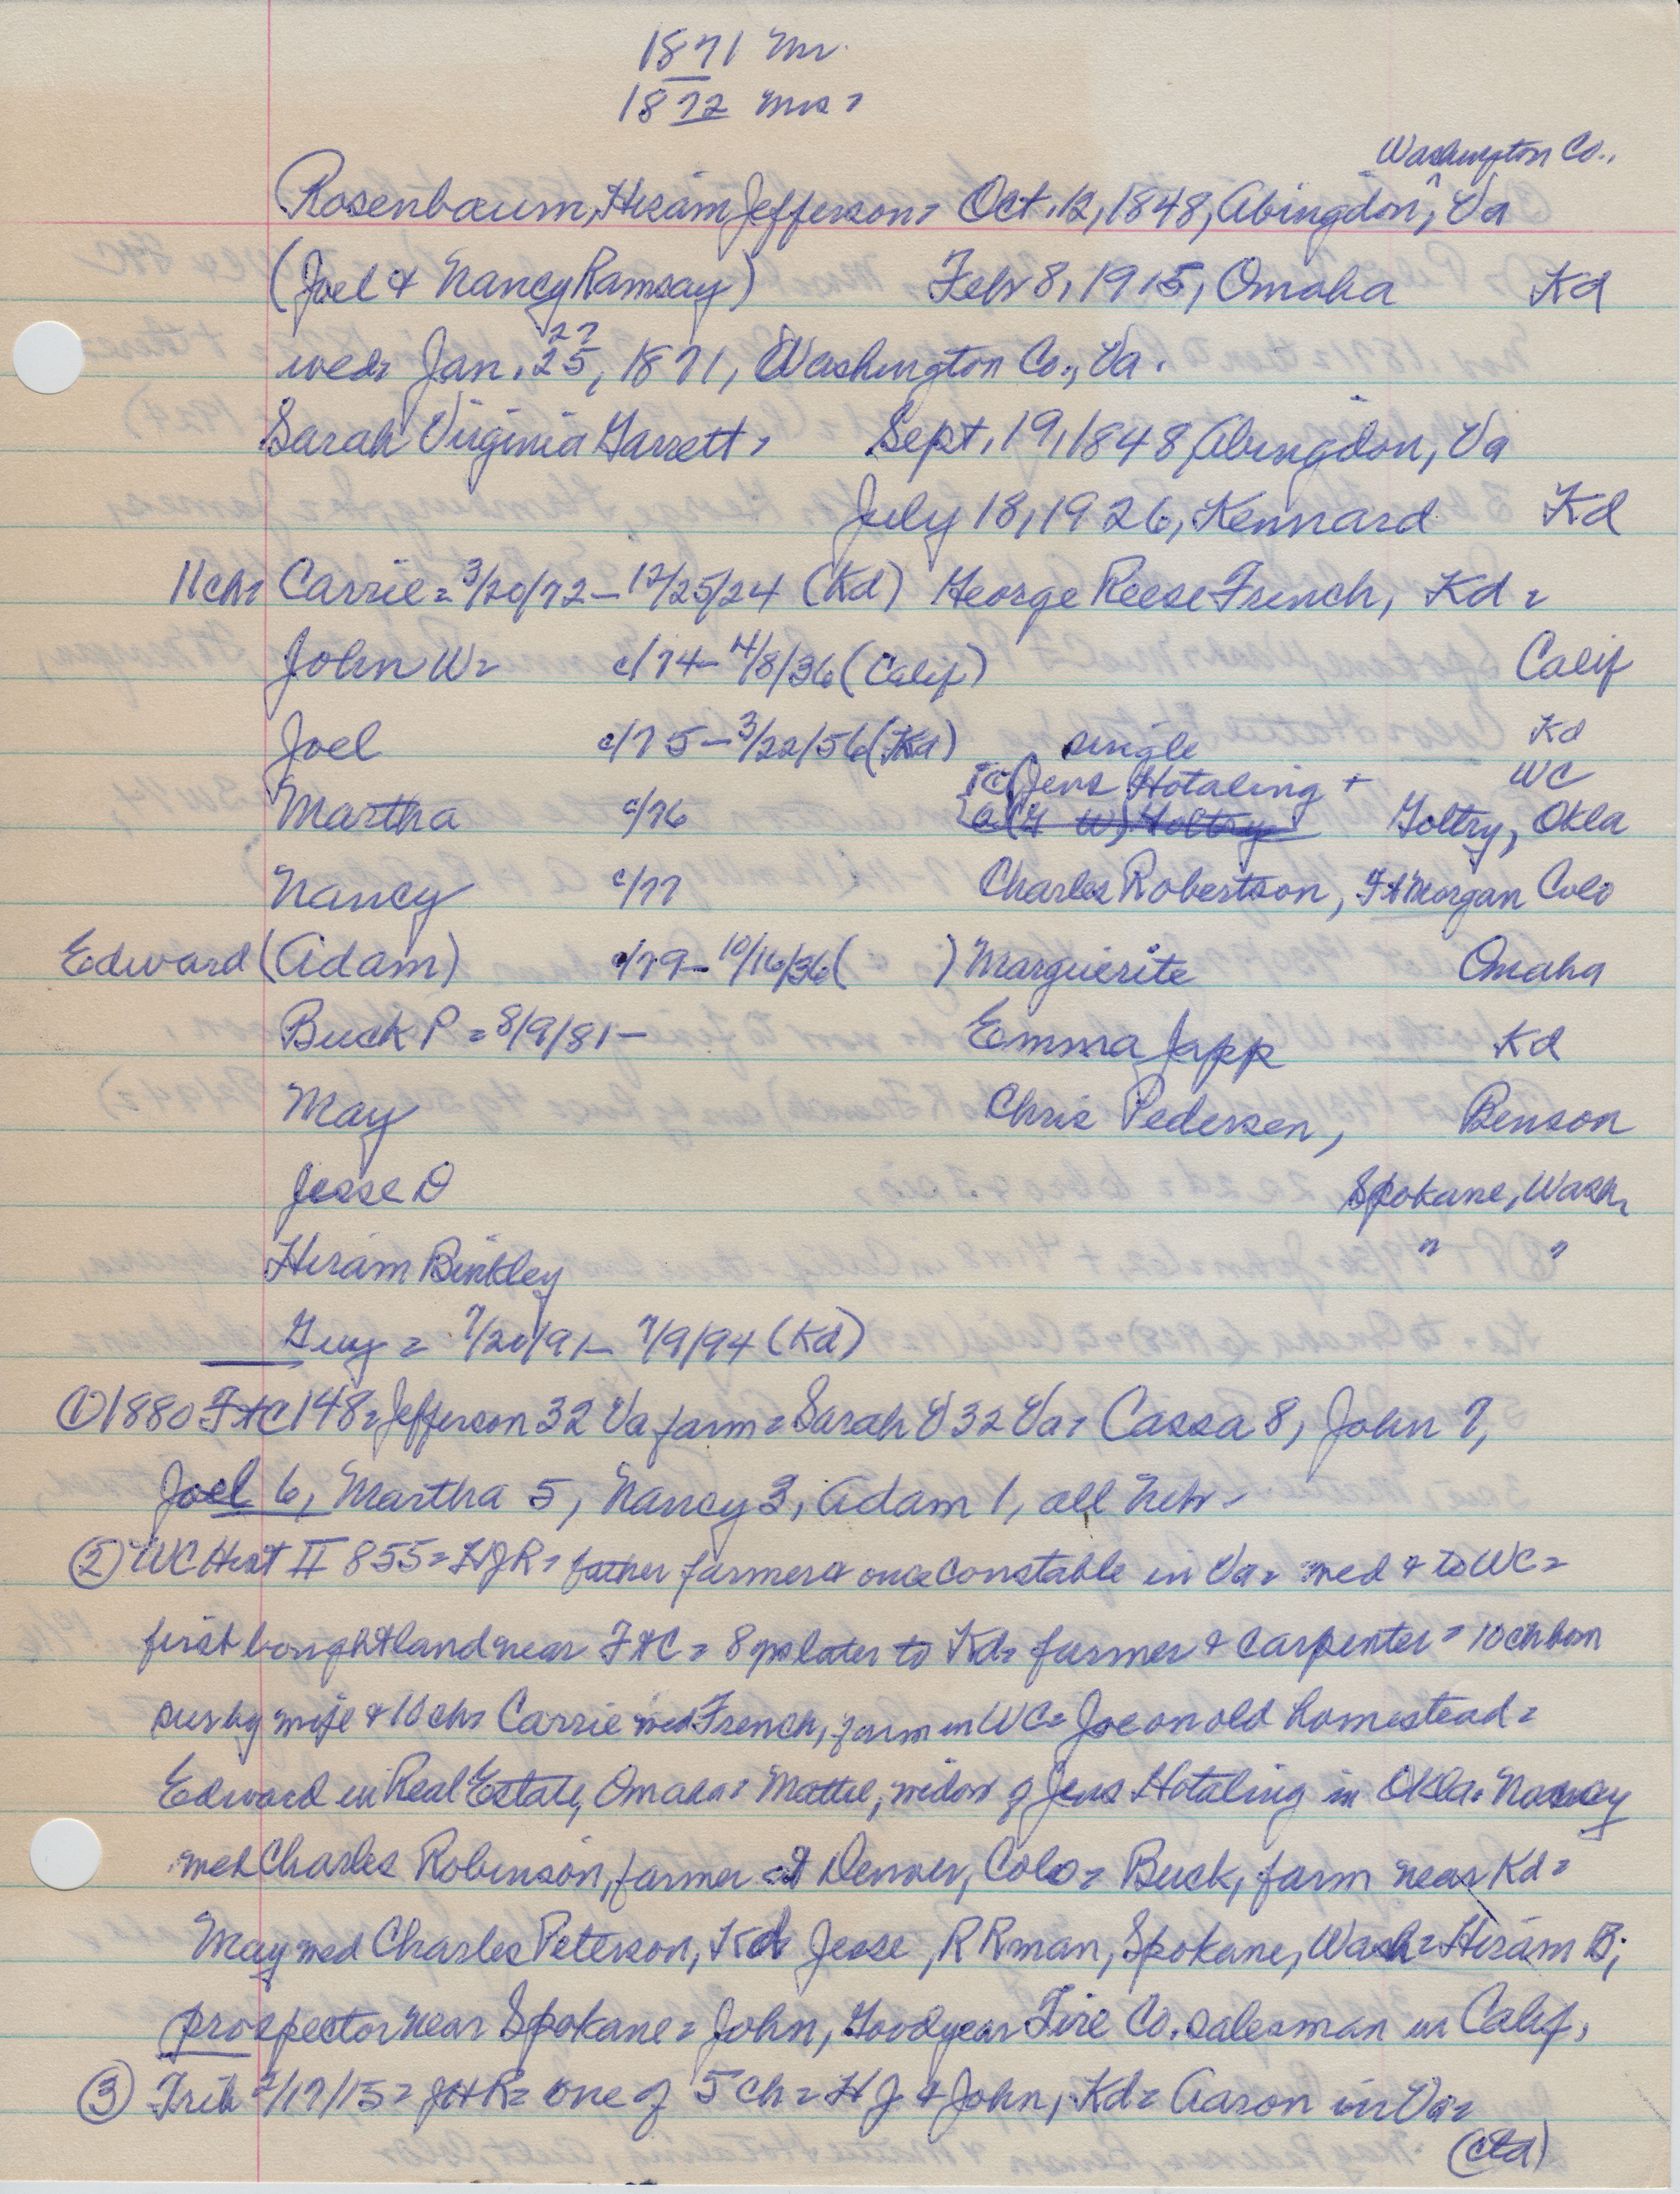 1871 Mr.
1872 Mrs =
Washington Co.,
Rosenbaum, Hiram Jefferson = Oct. 12, 1848, Abingdon ^, Va
(Joel & Nancy Ramsay) Feb 8, 1915, Omaha Kd
27
wed = Jan. 25, 1871, Washington Co., Va.
Sarah Virginia Garrett = Sept. 19, 1848, Abingdon, Va
July 18, 1926, Kennard Kd
11 ch = Carrie = 3/20/72 – 12/25/24 (Kd) George Reese French, Kd =
John W = c/74 – 4/8/36 (Calif) Calif
Joel c/75 – 3/22/56 (Kd) single Kd
Jens Hotaling + WC
Martha c/76 Goltry, Okla
Nancy c/77 Charles Robertson, Ft Morgan Colo
Edward (Adam) c/79 – 10/16/36 ( ) Marguerite Omaha
Buck P = 8/9/81 – Emma Japp Kd
May Chris Pedersen, Benson
Jesse D Spokane, Wash =
Hiram Binkley " "
Guy = 7/20/91 – 7/9/94 (Kd)
① 1880 FtC 148 = Jefferson 32 Va farm = Sarah V 32 Va = Cassa 8, John 7,
Joel 6, Martha 5, Nancy 3, Adam 1, all Nebr –
② WC Hist II 855 = HJR = father farmer & once constable in Va = wed & to WC =
first bought land near FtC = 8 yrs later to Kd = farmer & carpenter = 10 ch born
surv by wife & 10 ch = Carrie wed French, farm in WC = Joe on old homestead =
Edward in Real Estate, Omaha = Mattie, widow of Jens Hotaling in Okla = Nancy
wed Charles Robinson, farmer at Denver, Colo = Buck, farm near Kd =
May wed Charles Peterson, Kd = Jesse, RR man, Spokane, Wash = Hiram B,
prospector near Spokane = John, Goodyear Tire Co. salesman in Calif.
③ Trib 2/17/15 = one of 5 ch = HJ & John, Kd = Aaron in Va =
(ctd)